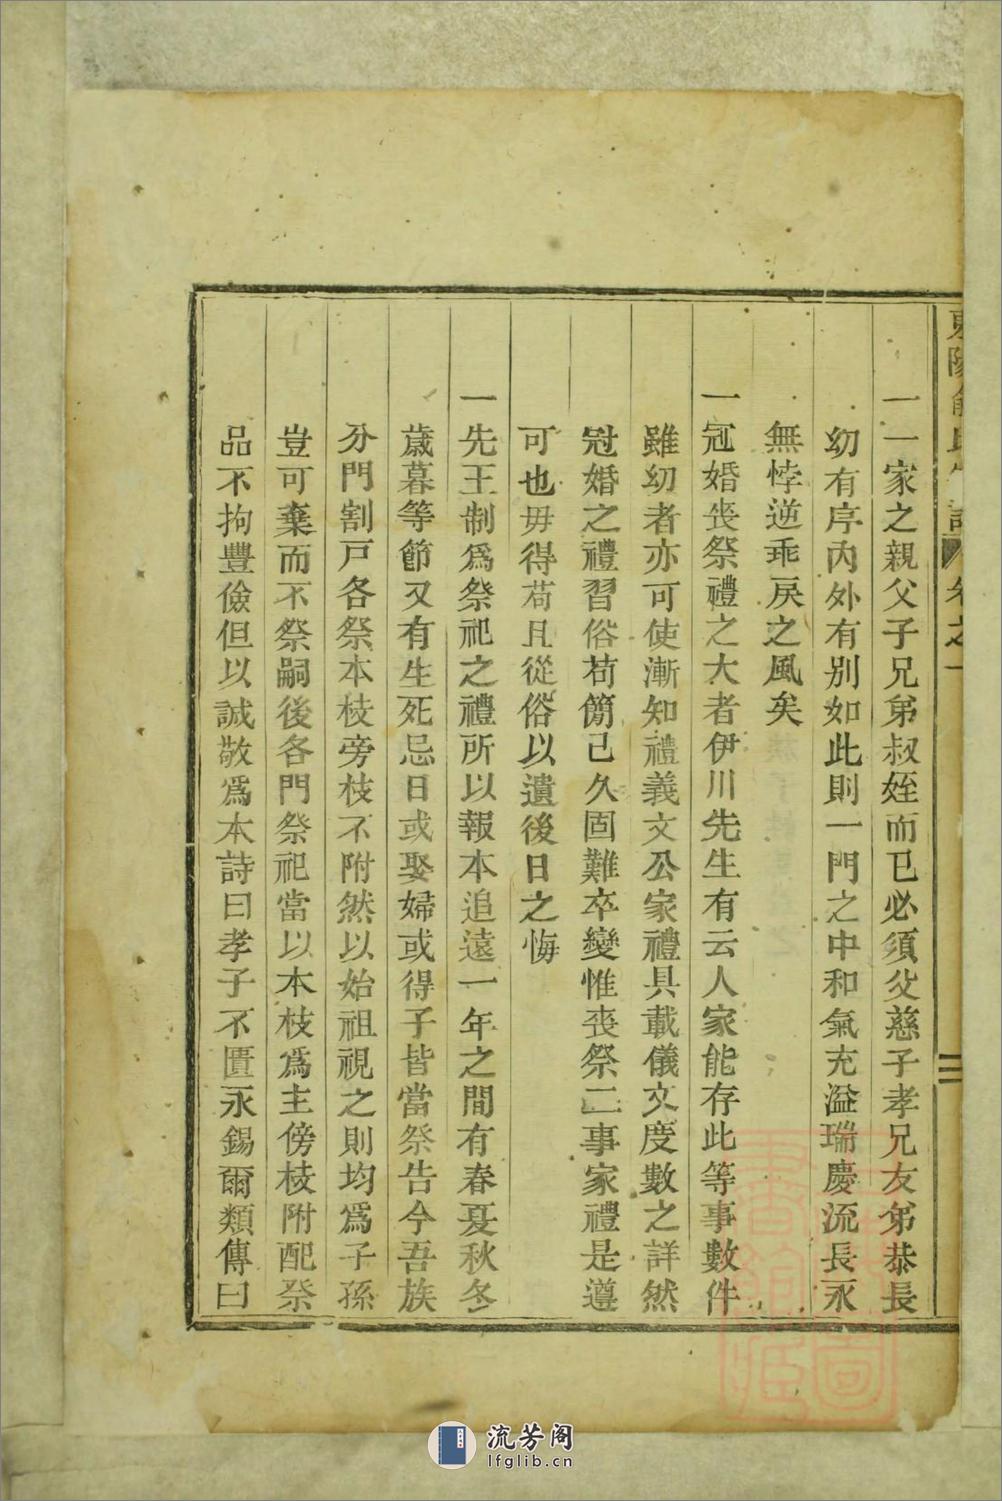 一一家之親父子兄弟叔姪而已必須父慈子孝兄友弟恭長
幼有序內外有別如此則一門之中和氣充溢瑞慶流長永
無悖逆乖戾之風矣
一冠婚喪祭禮之大者伊川先生有云人家能存此等事數件
雖幼者亦可使漸知禮義文公家禮具載儀文度數之詳然
冠婚之禮習俗苟簡已久固難卒變惟喪祭二事家禮是遵
可也毋得苟且從俗以遺後日之悔
一先王制爲祭祀之禮所以報本追遠一年之間有春夏秋冬
歲暮等節又有生死忌日或娶婦或得子皆當祭告今吾族
分門割戶各祭本枝旁枝不附然以始祖視之則均爲子孫
豈可棄而不祭嗣後各門祭祀當以本枝爲主傍枝附配祭
品不拘豐儉但以誠敬爲本詩曰孝子不匱永錫爾類傳曰
卷之一
流芳阁
lfglib.cn